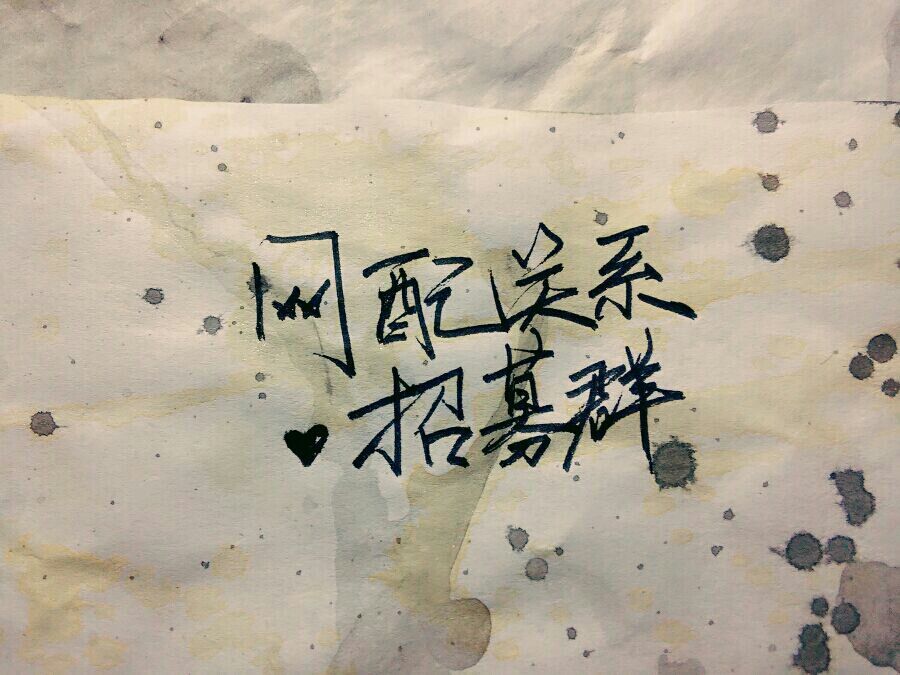 网配关系
♥招募群